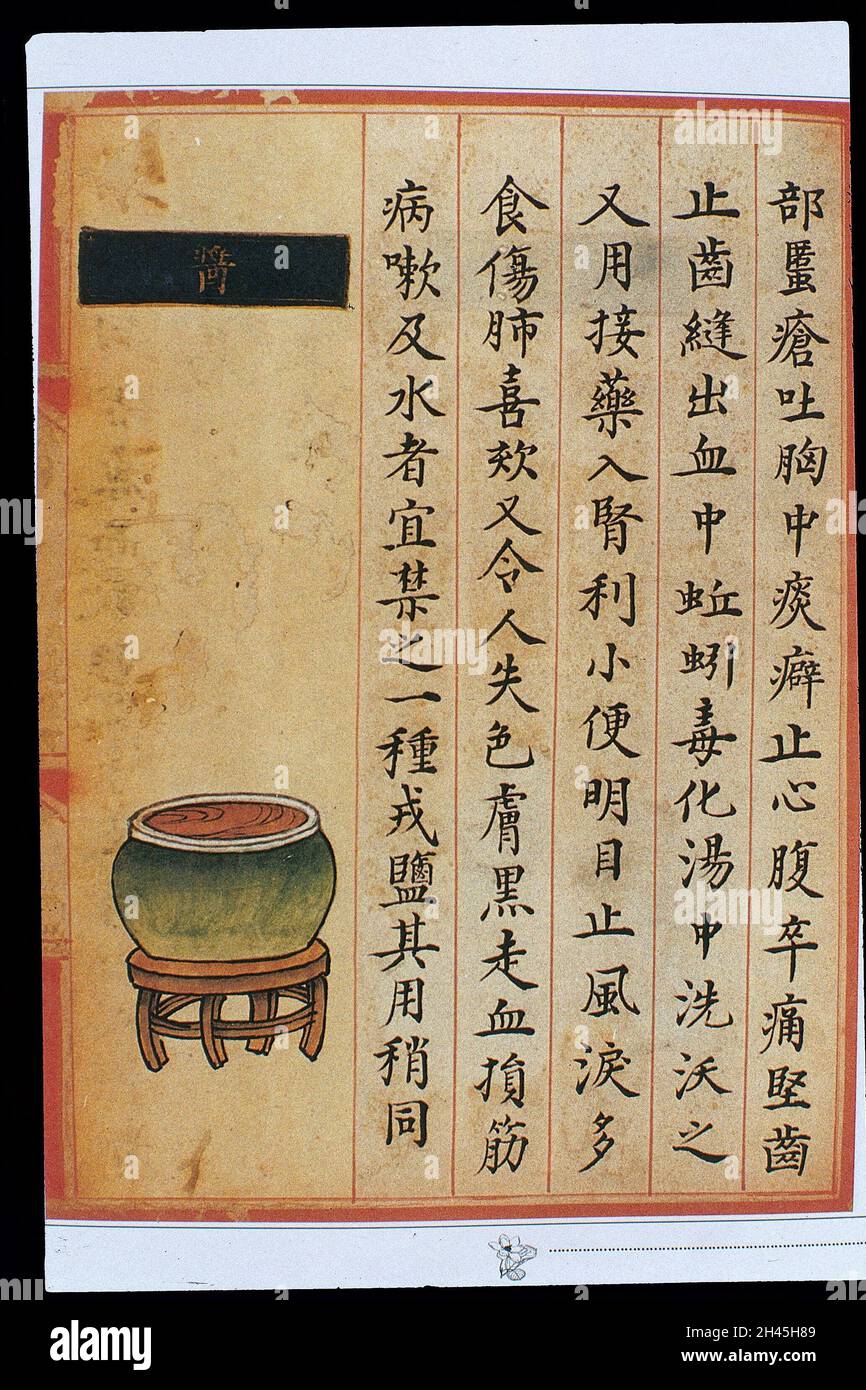 部䘌瘡吐胸中痰癖止心腹卒痛堅齒
止齒縫出血中蚯蚓毒化湯中洗沃之
又用接藥入腎利小便明目止風淚多
食傷肺喜欬又令人失色膚黑走血損筋
病嗽及水者宜禁之一種戎鹽其用稍同
醬
alamy
Image ID: 2H45H89
www.alamy.com